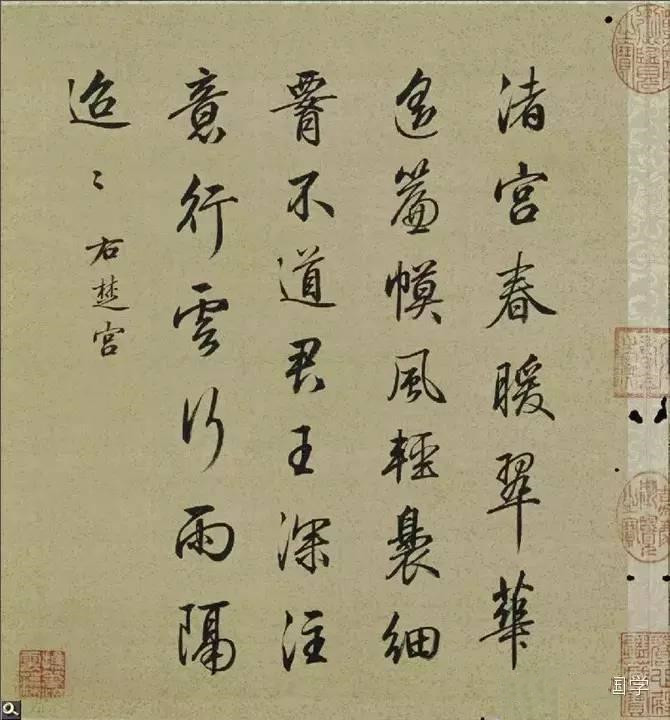 渚宮春暖翠華
遙簾幙風輕裊細
腰不道君王深注
意行雲行雨隔
迢〻
右楚宮
国学